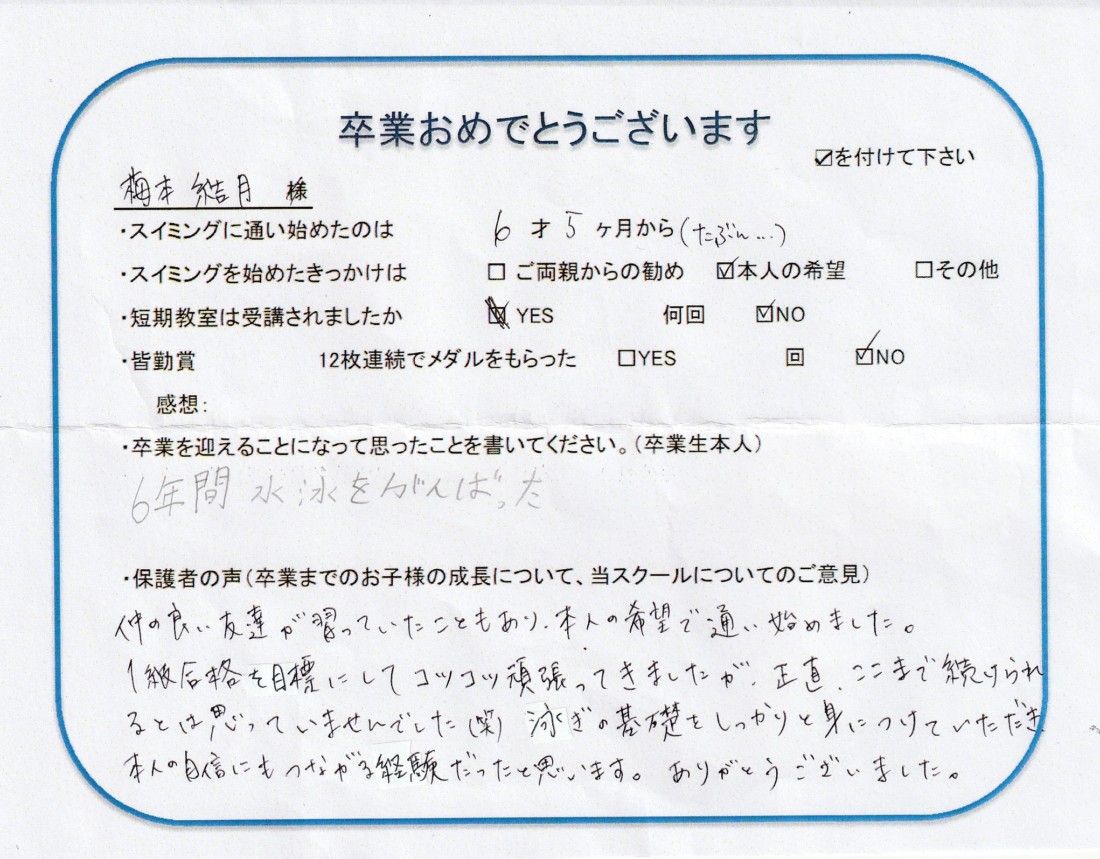 卒業おめでとうございます
☑を付けて下さい
梅本 結月 様
・スイミングに通い始めたのは 6 才 5 ヶ月から(たぶん...)
・スイミングを始めたきっかけは □ ご両親からの勧め ☑本人の希望 □その他
・短期教室は受講されましたか ☑ YES 何回 ☑NO
・皆勤賞 12枚連続でメダルをもらった □YES 回 ☑NO
感想:
・卒業を迎えることになって思ったことを書いてください。(卒業生本人)
6年間 水泳をがんばった
・保護者の声(卒業までのお子様の成長について、当スクールについてのご意見)
仲の良い友達が習っていたこともあり、本人の希望で通い始めました。
1級合格を目標にしてコツコツ頑張ってきましたが、正直、ここまで続けられ
るとは思っていませんでした(笑) 泳ぎの基礎をしっかりと身につけていただき
本人の自信にもつながる経験だったと思います。 ありがとうございました。